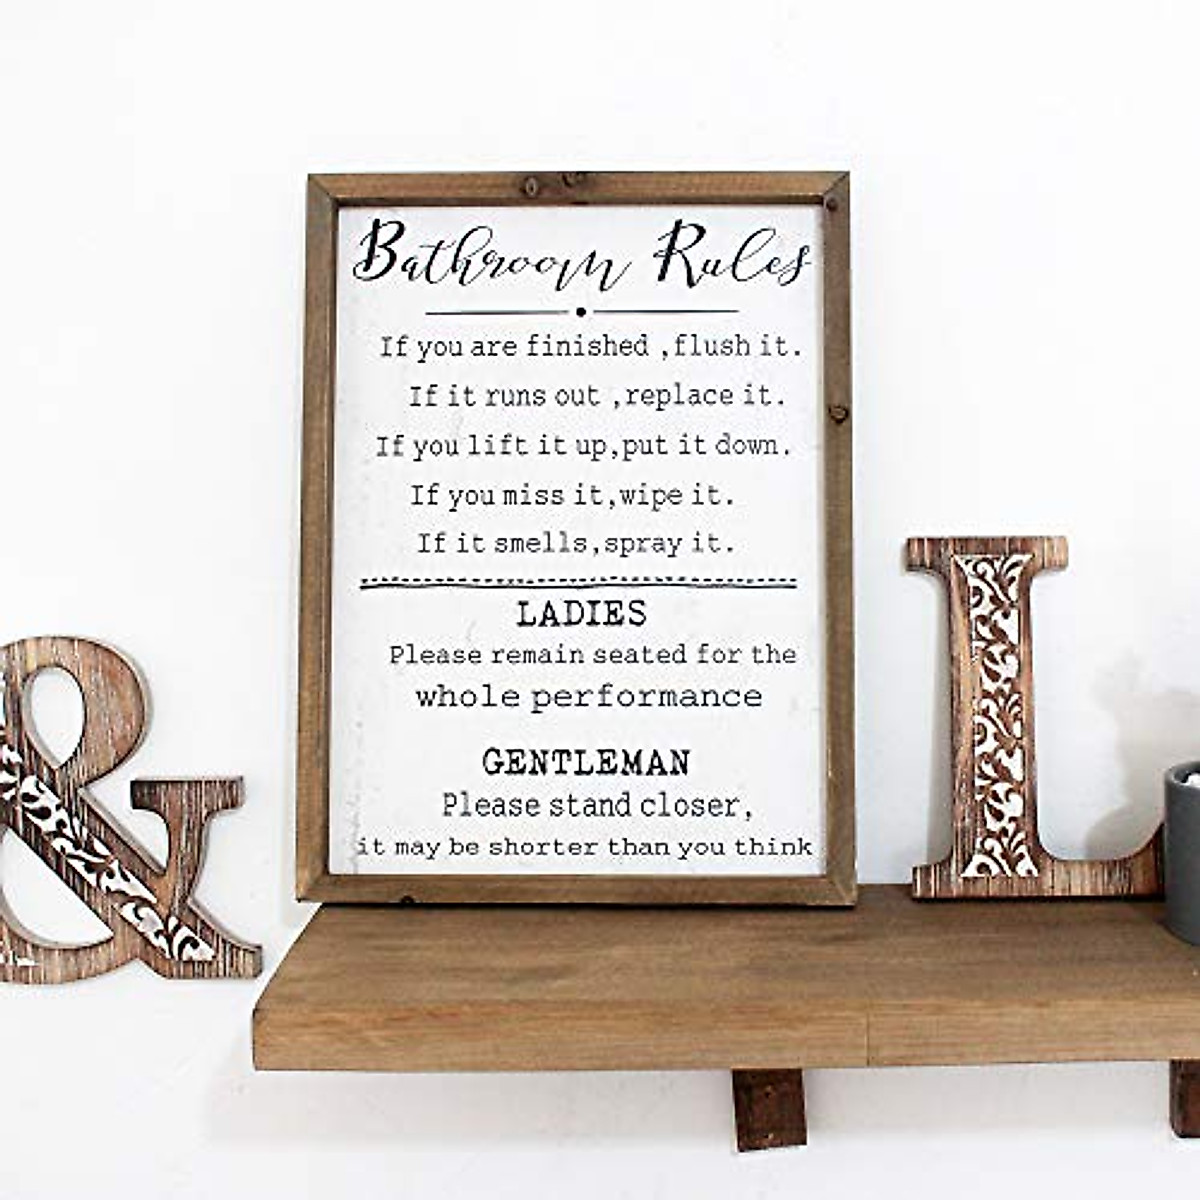 Bathroom Rules
If you are finished ,flush it.
If it runs out ,replace it.
If you lift it up,put it down.
If you miss it,wipe it.
If it smells,spray it.
LADIES
Please remain seated for the
whole performance
GENTLEMAN
Please stand closer,
it may be shorter than you think
&
L